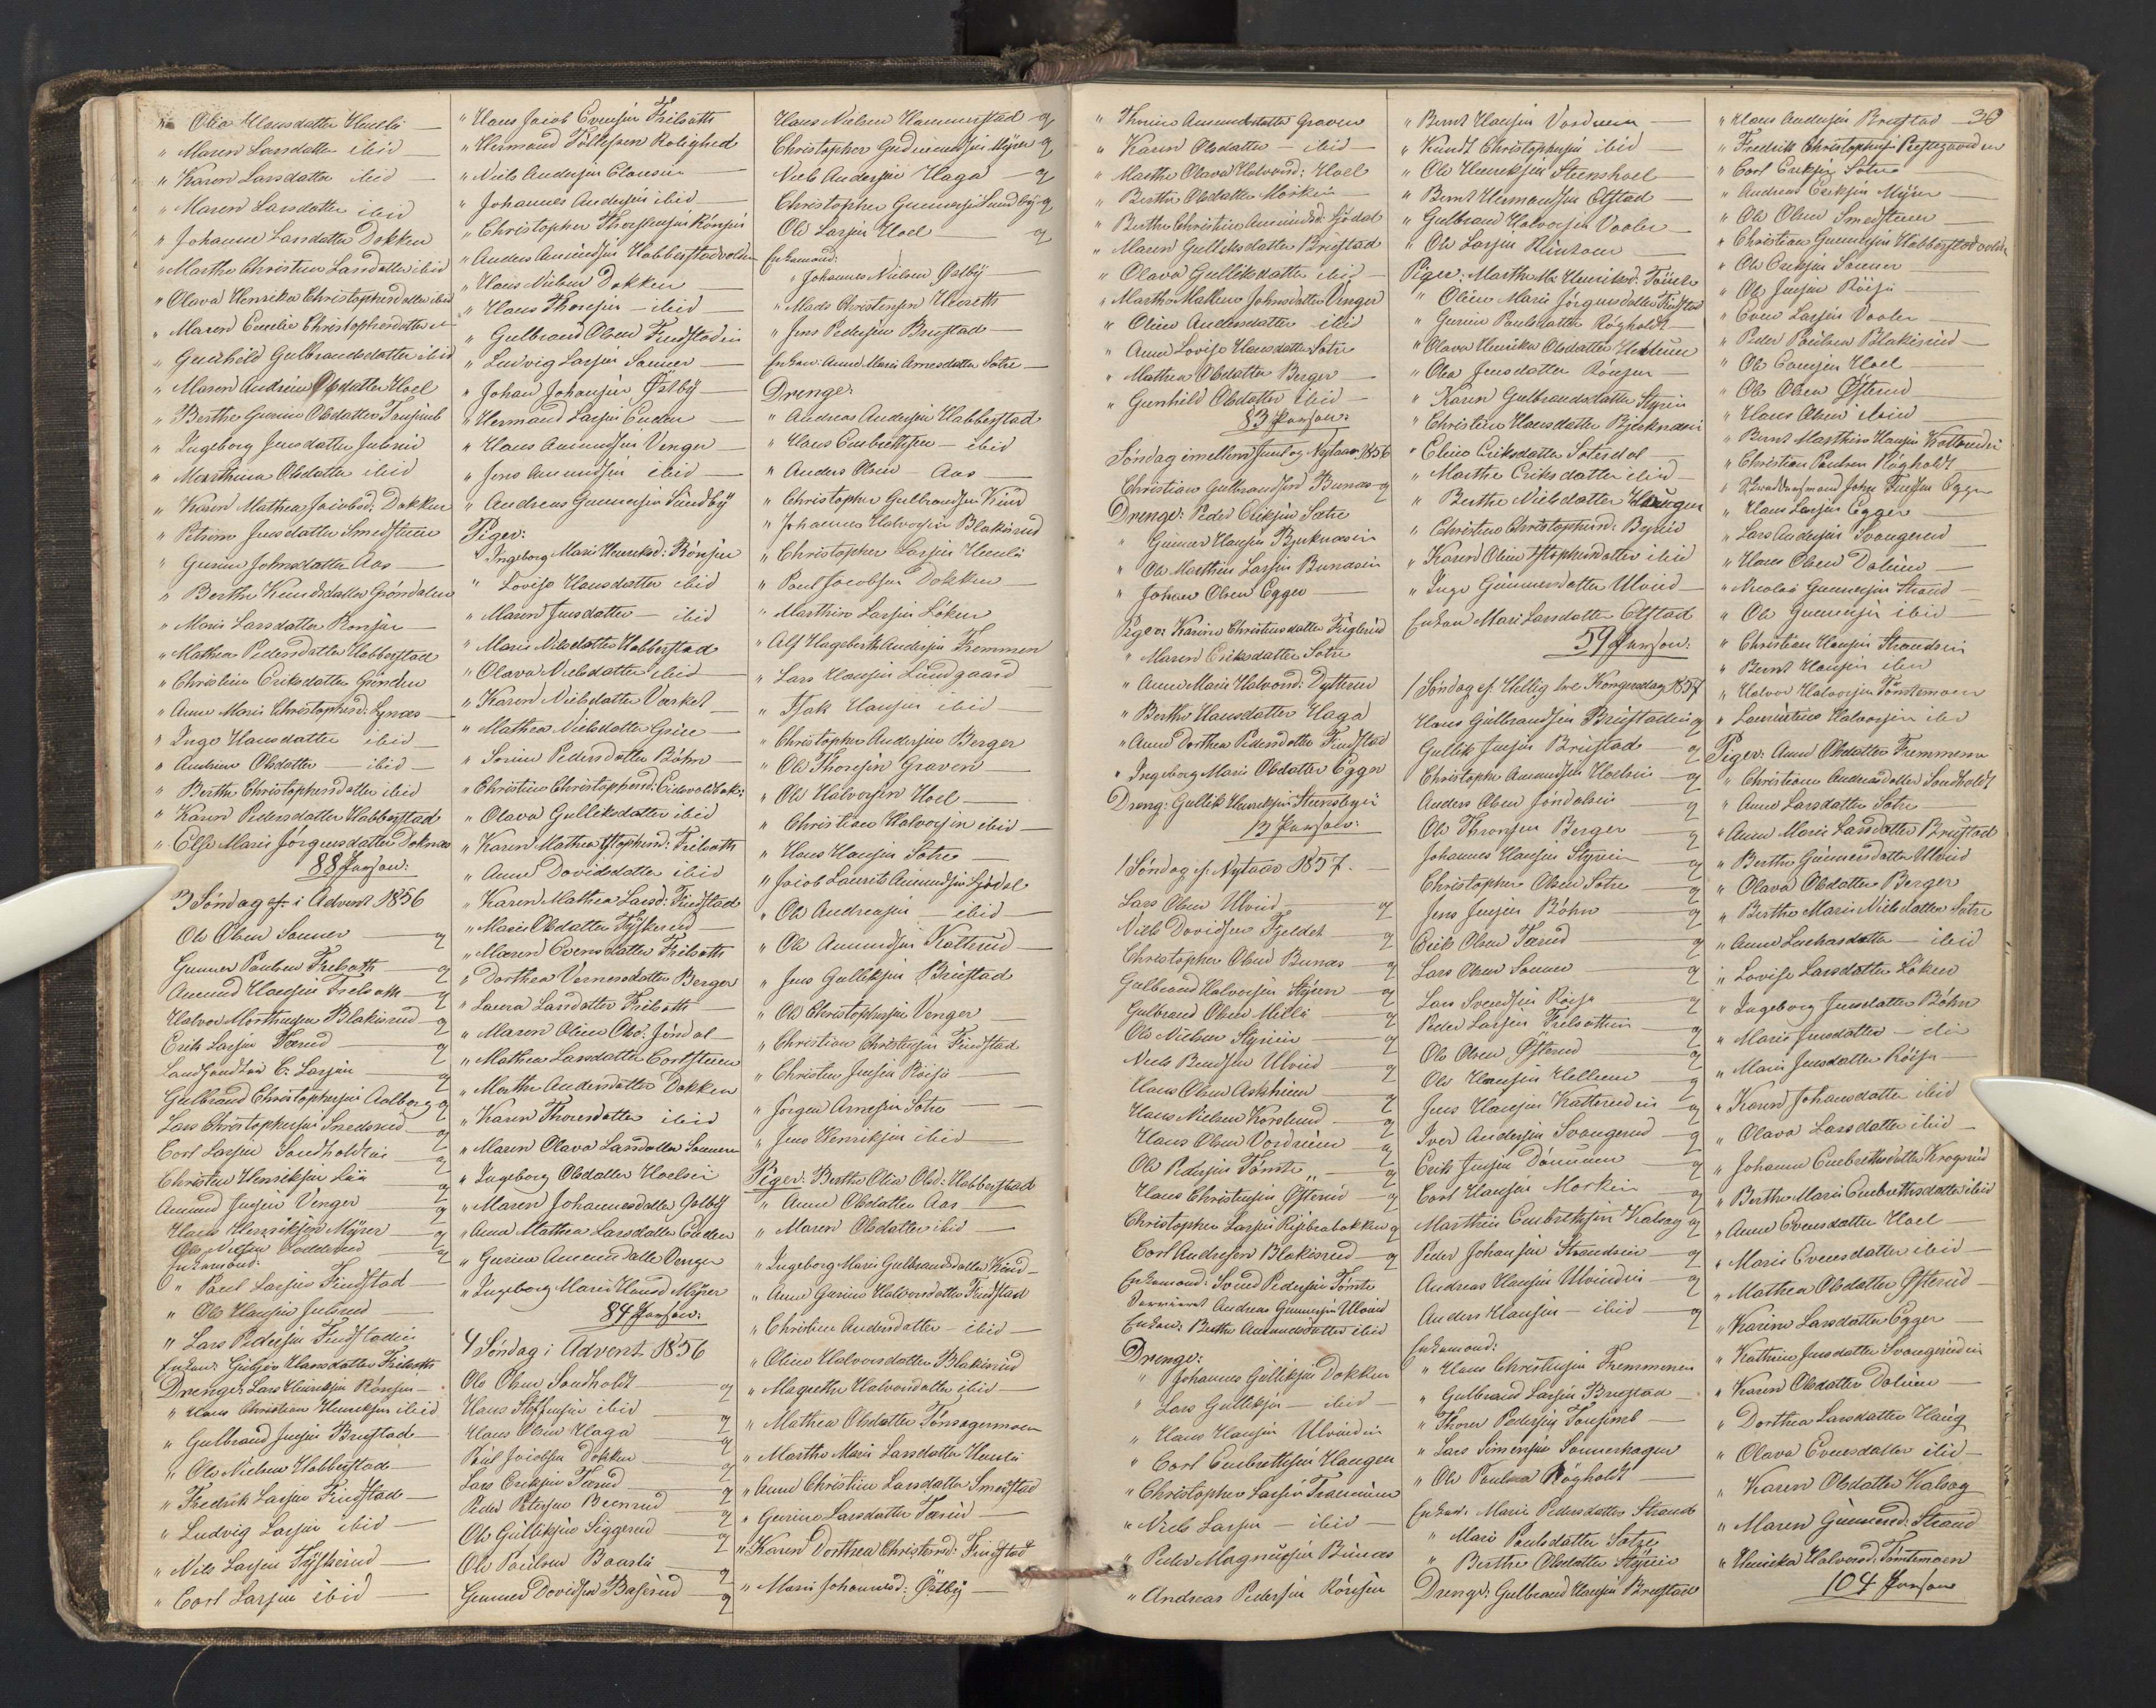 " Olia Hansdatter Huusli
" Maren Larsdatter ibid
" Karen Larsdatter ibid
" Maren Larsdatter ibid
" Johanne Larsdatter Dokken
" Marthe Christine Larsdatter ibid
" Olava Henrika Christophersdatter ibid
" Maren Emelie Christophersdatter
" Gunhild Gulbrandsdatter ibid
" Maren Andrine Olsdatter Hoel
" Berthe Gurine Olsdatter
" Ingeborg Jensdatter Julsrud
" Marthina Olsdatter ibid
" Karen Mathea Jacobsd: Dokken
" Petrine Jensdatter Smedstuen
" Gurine Johnsdatter Aas
" Berthe Knudsdatter Gröndalen
" Marie Larsdatter Rönsen
" Mathea Pedersdatter Habberstad
" Christine Eriksdatter
" Anne Marie Christophersd: Synæs
" Inge Hansdatter ibid
" Andrine Olsdatter ibid
" Berthe Christophersdatter ibid
" Karen Pedersdatter Habberstad
" Else Marie Jörgensdatter Doknæs
88 Person:
3 Söndag i Advent 1856
Ole Olsen Sonner g
Gunner Paulsen Frilseth g
Amund Hansen Frilseth g
Halvor Morthensen Blakisrud g
Erik Larsen Tærud g
Landhandler C. Larsen g
Gulbrand Christophersen Aalborg g
Lars Christophersen Snedsrud g
Carl Larsen Sandholdtei g
Christen Henriksen Lia g
Amund Jensen Venger g
Hans Henriksen Myrer g
Ole Nilsen Loddrud g
Enkemand:
" Paul Larsen Findstad
" Ole Hansen Julsrud
" Lars Pedersen Findstadei
Enken: Gubjör Hansdatter Frilseth
Drenge: Lars Henriksen Rönsen
" Hans Christian Henriksen ibid
" Gulbrand Jensen Brustad
" Ole Nielsen Habberstad
" Fredrik Larsen Findstad
" Ludvig Larsen ibid
" Nils Larsen Tyskerud
" Carl Larsen ibid
" Hans Jacob Evensen Frilseth
" Hermand Tollefsen Rolighed
" Niels Andersen Clausen
" Johannes Andersen ibid
" Christopher Thorstensen Rönsen
" Anders Amundsen Habberstadvolden
" Hans Nilsen Dokken
" Hans Thoresen ibid
" Gulbrand Olsen Findstadei
" Ludvig Larsen Sonner
" Johan Johansen Östby
" Hermand Larsen Enden
" Hans Amundsen Venger
" Jens Amundsen ibid
" Andreas Gunnersen Sundby
Piger:
" Ingeborg Marie Henriksd: Rönsen
" Lovise Hansdatter ibid
" Maren Jensdatter ibid
" Marie Nilsdatter Habberstad
" Olava Nielsdatter ibid
" Karen Nielsdatter Vasket
" Mathea Nielsdatter
" Sorine Pedersdatter Böhn
" Christine Christophersd: Eidsvoldbak:
" Olava Gulliksdatter ibid
" Karen Mathea Christophersd: Frilseth
" Anne Davidsdatter ibid
" Karen Mathea Larsd: Findstad
" Marie Olsdatter Tyskerud
" Maren Evensdatter Frilseth
" Dorthea Vernersdatter Berger
" Laura Larsdatter Frilseth
" Maren Oline Olsd: Jöndal
" Mathea Larsdatter
" Marthe Andersdatter Dokken
" Karen Thoresdatter ibid
" Maren Olava Larsdatter Sonneren
" Ingeborg Olsdatter Hoelsei
" Maren Johannesdatter Östby
" Anne Mathea Larsdatter Enden
" Gurine Amundsdatter Venger
" Ingeborg Marie Hansd Myrer
84 Person:
4 Söndag i Advent 1856
Ole Olsen Sandholdt g
Hans Steffensen ibid g
Hans Olsen Haga g
Paul Jacobsen Dokken g
Lars Eriksen Tærud g
Peder Petersen Beenrud g
Ole Gulliksen Siggerud g
Ole Paulsen Baarli g
Gunner Davidsen Baserud g
Hans Nielsen Hammerstad g
Christopher Gudmundsen Myrer g
Niels Andersen Haga g
Christopher Gunnersen Sundby g
Ole Larsen Hoel g
Enkemand:
" Johannes Nielsen Östby
" Mads Christensen
" Jens Pedersen Brustad
Enken: Anne Marie Arnesdatter Sætre
Drenge:
" Andreas Andersen Habberstad
" Hans Embrethsen ibid
" Anders Olsen Aas
" Christopher Gulbrandsen Kind
" Johannes Halvorsen Blakisrud
" Christopher Larsen Huusli
" Paul Jacobsen Dokken
" Marthin Larsen Löken
" Alf Hagebert Andersen Fremmen
" Lars Hansen Lundgaard
" Isak Hansen ibid
" Christopher Andersen Berger
" Ole Thoresen Graven
" Ole Halvorsen Hoel
" Christian Halvorsen ibid
" Hans Hansen Sætre
" Jacob Laurits Amundsen Sjödal
" Ole Andreasen ibid
" Ole Amundsen Katterud
" Jens Gulliksen Brustad
" Ole Christophersen Venger
" Christian Christensen Findstad
" Christen Jensen Röise
" Jörgen Arnesen Sætre
" Jens Henriksen ibid
Piger: Berthe Olia Olsd: Habberstad
" Anne Olsdatter Aas
" Maren Olsdatter ibid
" Ingeborg Marie Gulbrandsdatter Kind
" Anne Gurine Halvorsdatter Findstad
" Christine Andersdatter ibid
" Oline Halvorsdatter Blakisrud
" Magrethe Halvorsdatter ibid
" Mathea Olsdatter Tönsagermoen
" Marthe Marie Larsdatter Huusli
" Anne Christine Larsdatter Smedstad
" Gurine Larsdatter Tærud
" Karen Dorthea Christensd: Findstad
" Marie Johannesd: Östby
36
" Thorine Amundsdatter Graven
" Karen Olsdatter ibid
" Marthe Olava Halvorsd: Hoel
" Berthe Olsdatter Morken
" Berthe Christine Amundsd: Sjödal
" Maren Gulliksdatter Brustad
" Olava Gulliksdatter ibid
" Marthe Mathea Johnsdatter Venger
" Oline Andersdatter ibid
" Anne Lovise Hansdatter Sætre
" Mathea Olsdatter Berger
" Gunhild Olsdatter ibid
83 Person:
Söndag imellem Juul og Nytaar 1856
Christian Gulbrandsen Bunæs g
Drenge: Peder Eriksen Sætre
" Gunner Hansen Bjerknæsei
" Ole Marthin Larsen Bunæsei
" Johan Olsen Egger
Piger: Karine Christensdatter Fuglerud
" Maren Eriksdatter Sætre
" Anne Marie Halvorsd: Dytterud
" Berthe Hansdatter Haga
" Anne Dorthea Pedersdatter Findstad
" Ingeborg Marie Olsdatter Egger
Dreng: Gullik Henriksen
13 Person:
1 Söndag ef. Nytaar 1857.
Lars Olsen Ulvind g
Niels Davidsen Fjeldet g
Christopher Olsen Bunæs g
Gulbrand Halvorsen Styren g
Gulbrand Olsen Milli g
Ole Nielsen Styriei g
Niels Bendsen Ulvind g
Hans Olsen Askheim g
Hans Nielsen Korslund g
Hans Olsen Vordrum g
Ole Pedersen Tömte g
Hans Christensen Österud g
Christopher Larsen Ripsbakken g
Carl Andersen Blakisrud g
Enkemand: Svend Pedersen Tömte
Andreas Gunnersen Ulvind
Enken: Berthe Amundsdatter ibid
Drenge:
" Johannes Gulliksen Dokken
" Lars Gulliksen ibid
" Hans Hansen Ulvindei
" Carl Embrethsen Haugen
" Christopher Larsen
" Niels Larsen ibid
" Peder Magnussen Bunæs
" Andreas Pedersen Rönsen
" Bernt Hansen Vordrum
" Knudt Christophersen ibid
" Ole Henriksen Steenshoel
" Bernt Hermandsen Elstad
" Gulbrand Halvorsen Vaaler
" Ole Larsen
Piger: Marthe Ma: Henriksd: Tömte
" Oline Marie Jörgensdatter Findstad
" Gurine Paulsdatter Rögholdt
" Olava Henrika Olsdatter Hellum
" Olea Jensdatter Rönsen
" Karen Gulbrandsdatter Styrei
" Christine Hansdatter Bjerknæsei
" Eline Eriksdatter Sætersdal
" Marthe Eriksdatter ibid
" Berthe Nielsdatter Haugen
" Christine Christophersd: Byrud
" Karen Oline Christophersdatter ibid
" Inge Gunnersdatter Ulvind
Enken Marie Larsdatter Elstad
59 Person:
1 Söndag ef. Hellig tre Kongersdag 1857
Hans Gulbrandsen Brustadei g
Gullik Jensen Brustad g
Christopher Amundsen Hoelsei g
Anders Olsen Jöndalsei g
Ole Thronsen Berger g
Johannes Hansen Styrei g
Christopher Olsen Sætre g
Jens Jensen Böhn g
Erik Olsen Tærud g
Lars Olsen Sonner g
Lars Svendsen Röise g
Peder Larsen Frilsethei g
Ole Olsen Österud g
Ole Hansen Hellum g
Jens Hansen Katterudei g
Iver Andersen Svangerud g
Erik Jensen Dönnum g
Carl Hansen Morken g
Marthin Embrethsen Kalsag g
Peder Johansen Strandsei g
Andreas Hansen Ulvindei g
Anders Hansen ibid g
Enkemand:
" Hans Christensen Fremmenei
" Gulbrand Larsen Brustad
" Thorer Pedersen
" Lars Simensen Sonnerhagen
" Ole Paulsen Rögholdt
Enken: Marie Pedersdatter Strand
" Marie Paulsdatter Sætre
" Berthe Olsdatter Styrei
Drenge: Gulbrand Hansen Brustad
" Hans Andersen Brustad
" Fredrik Christophersen
" Carl Eriksen Sætre
" Andreas Eriksen Myrer
" Ole Olsen Smedstuen
" Christian Gunnersen Habberstadvolden
" Ole Eriksen Sonner
" Ole Jensen Röise
" Even Larsen Vaaler
" Peder Paulsen Blakisrud
" Ole Evensen Hoel
" Ole Olsen Österud
" Hans Olsen ibid
" Bernt Marthin Hansen Katterudei
" Christian Paulsen Rögholdt
" John Egger
" Hans Larsen Egger
" Lars Andersen Svangerud
" Hans Olsen Dalseie
" Nicolai Gunnersen Strand
" Ole Gunnersen ibid
" Christian Hansen Strandsei
" Bernt Hansen ibid
" Halvor Halvorsen Tömtemoen
" Laurentius Halvorsen ibid
Piger: Anne Olsdatter Fremmene
" Christiane Andersdatter Sandholdt
" Anne Larsdatter Sætre
" Anne Marie Larsdatter Brustad
" Berthe Gunnersdatter Ulvind
" Olava Olsdatter Berger
" Berthe Marie Nielsdatter Sætre
" Anne Zachariasdatter ibid
" Lovise Larsdatter Löken
" Ingeborg Jensdatter Böhn
" Marie Jensdatter ibid
" Marie Jensdatter Röise
" Karen Johansdatter ibid
" Olava Larsdatter ibid
" Johanne Embrethsdatter Krogsrud
" Berthe Marie Embrethsdatter ibid
" Anne Evensdatter Hoel
" Marie Evensdatter ibid
" Mathea Olsdatter Österud
" Karine Larsdatter Egger
" Kathrine Jensdatter Svangerudei
" Karen Olsdatter Dalseie
" Dorthea Larsdatter Haug
" Olava Evensdatter ibid
" Karen Olsdatter Kalsag
" Maren Gunnersd: Strand
" Henrika Halvorsd: Tömtemoen
104 Person